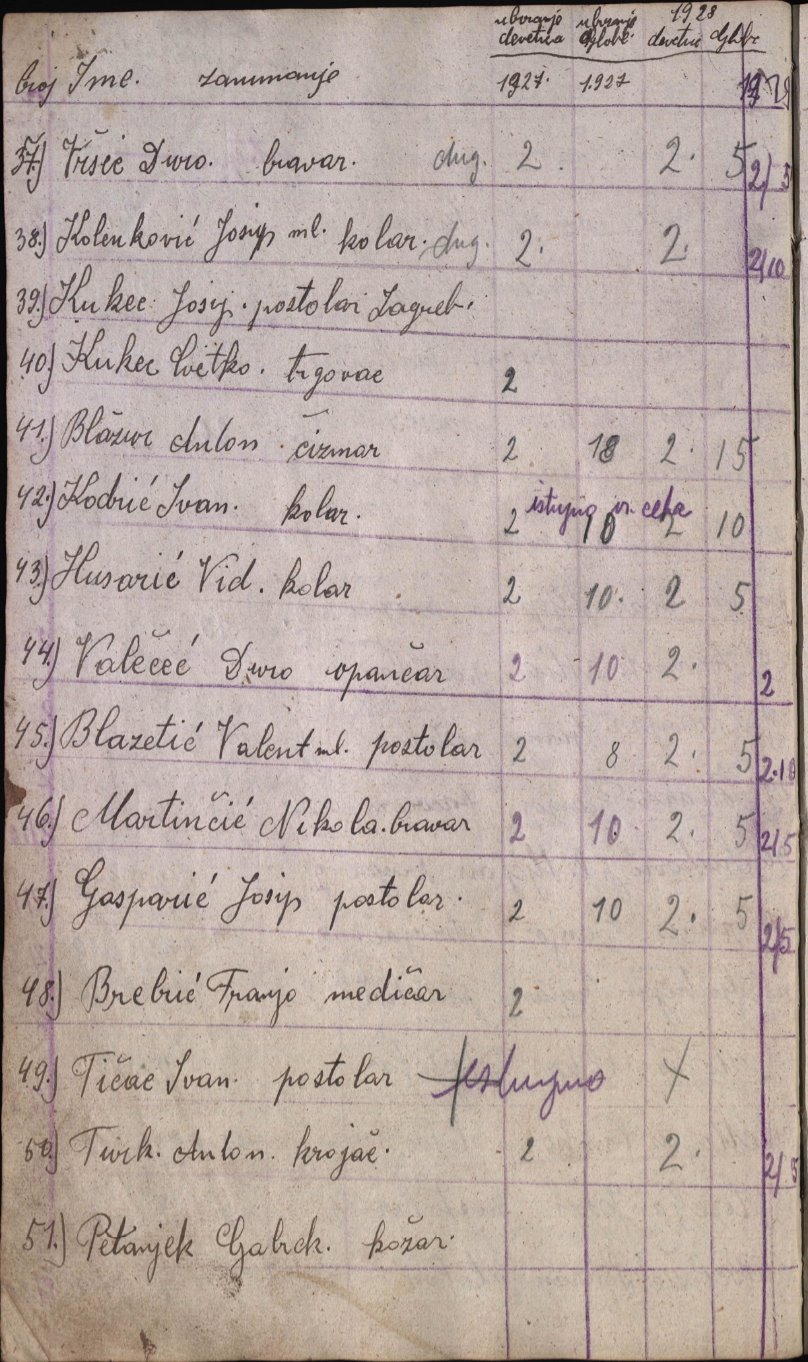 ubiranje ubiranje 1928
devetica globe devetic globe
broj Ime. zanimanje 1927. 1927 19
37.) Vršić Đuro. bravar. dug. 2. 2. 5 2/5
38.) Kolenković Josip ml. kolar. dug. 2. 2. 2/10
39.) Kukec Josip. postolar Zagreb.
40.) Kukec Cvetko. trgovac 2
41.) Blažur Anton. čizmar 2 18 2. 15
istupio iz ceha
42.) Kodrić Ivan. kolar. 2 10 2 10
43.) Husarić Vid. kolar 2 10. 2 5
44.) Valečeć Đuro opančar 2 10 2. 2
45.) Blazetić Valent ml. postolar 2 8 2. 5 2.10
46.) Martinčić Nikola. bravar 2 10 2. 5 2/5
47.) Gasparić Josip postolar. 2 10 2. 5 2/5
48.) Brebrić Franjo medičar 2
49.) Tičac Ivan. postolar istupio X
50.) Turk. Anton. krojač. 2 2. 2/5
51.) Petanjek Gabrek. kožar.